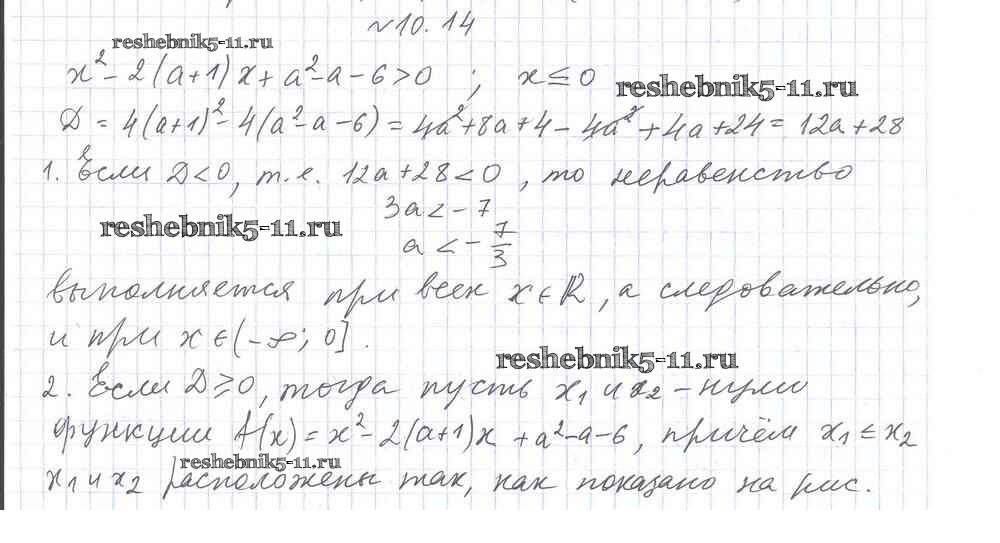 №10.14
reshebnik5-11.ru
x² - 2(a+1)x + a² - a - 6 > 0 ; x ≤ 0
reshebnik5-11.ru
D = 4(a+1)² - 4(a² - a - 6) = 4a² + 8a + 4 - 4a² + 4a + 24 = 12a + 28
1. Если D < 0, т.е. 12a + 28 < 0, то неравенство
3a < -7
reshebnik5-11.ru
a < -7/3
выполняется при всех x ∈ R, а следовательно,
и при x ∈ (-∞; 0].
reshebnik5-11.ru
2. Если D ≥ 0, тогда пусть x₁ и x₂ - нули
функции f(x) = x² - 2(a+1)x + a² - a - 6, причём x₁ ≤ x₂
reshebnik5-11.ru
x₁ и x₂ расположены так, как показано на рис.